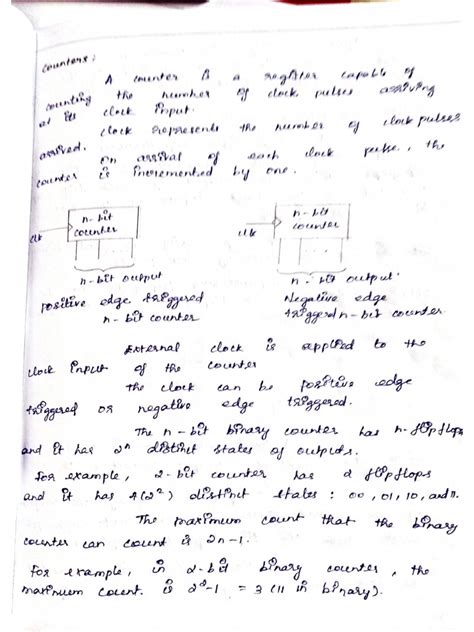 Counters:
A counter is a register capable of
counting the number of clock pulses arriving
at its clock input.
Clock represents the number of clock pulses
arrived.
On arrival of each clock pulse, the
counter is incremented by one.
n-bit
counter
clk
n-bit output
positive edge triggered
n-bit counter
n-bit
counter
clk
n-bit output.
Negative edge
triggered n-bit counter.
External clock is applied to the
clock input of the counter
The clock can be positive edge
triggered or negative edge triggered.
The n-bit binary counter has n-flipflops
and it has 2ⁿ distinct states of outputs.
For example, 2-bit counter has 2 flipflops
and it has 4(2²) distinct states : 00, 01, 10, and 11.
The maximum count that the binary
counter can count is 2n-1.
For example, in 2-bit binary counter, the
maximum count. is 2²-1 = 3 (11 in binary).